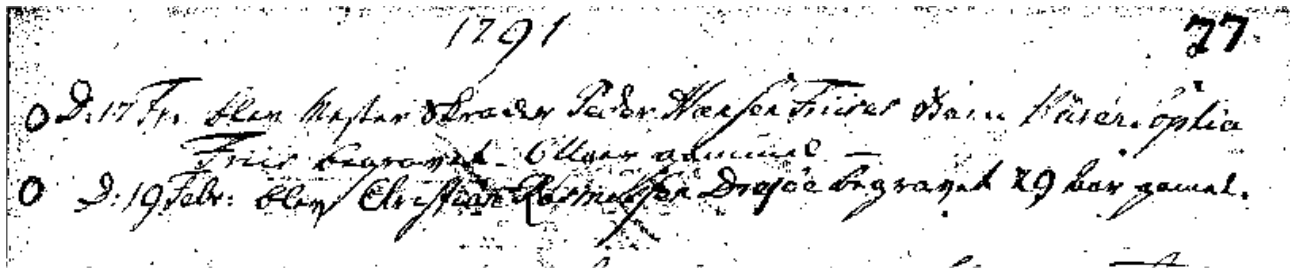 1791 77
D: 17 Fr. blev Mester Skræder Peder Hansen Friises Barn
Friis begravet. gammel —
D: 19 Febr: blev Christian Rasmussen Drejøe begravet 29 aar gamel.